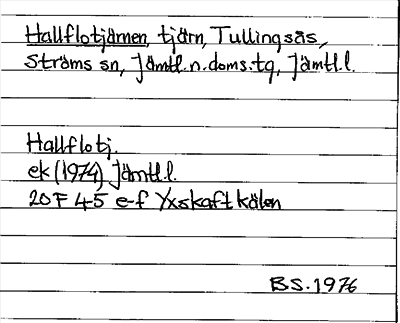 Hallflotjärnen, tjärn, Tullingsås,
Ströms sn, Jämtl.n.doms.tg, Jämtl.l.
Hallflotj.
ek (1974) Jämtl.l.
20F 4-5 e-f Yxskaftkälen
BS.1976